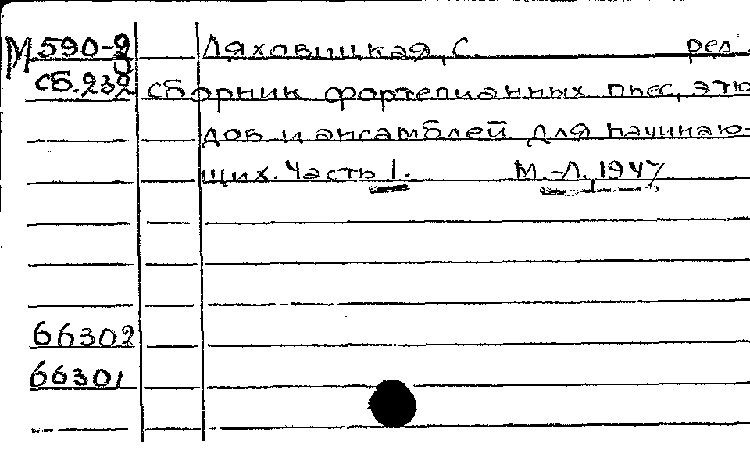 М590-2 Ляховицкая, С. ред.
сб.232 Сборник фортепианных пьес, этю-
дов и ансамблей для начинаю-
щих. Часть 1. М.-Л, 1947
66302
66301